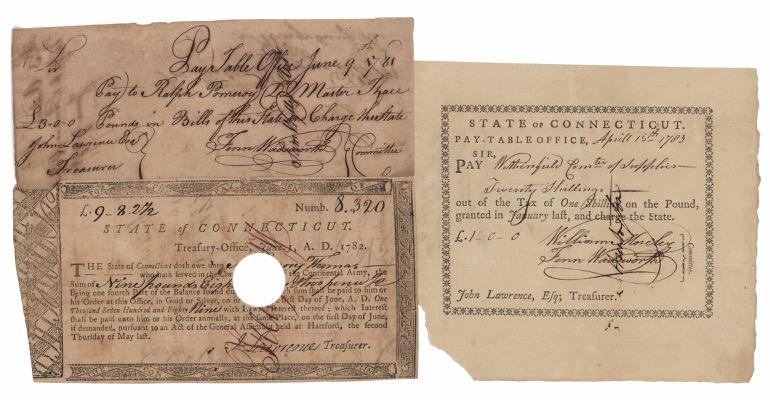 Sir Pay Table Office June 9th 1781
Pay to Ralph Pomeroy D Q Master Three
£3-0-0 Pounds in Bills of this State and Charge the State
John Lawrence Esqr
Treasurer
Fenn Wadsworth
Committee
£.9-8.2 1/2 Numb. 8.320
STATE of CONNECTICUT.
Treasury-Office, June 1, A. D. 1782.
THE State of Connecticut doth owe unto Thomas
who hath served in the the Continental Army, the
Sum of Nine pounds Eigh
Being one fourth Part of the Balance found due sum shall be paid to
his Order at this Office, in Gold or Silver, on First Day of June, A. D. One
Thousand Seven Hundred and Eighty Nine with Lawful Interest thereof; which Interest
shall be paid unto him or his Order annually, at the same Place, on the first Day of June,
if demanded, pursuant to an Act of the General Assembly held at Hartford, the second
Thursday of May last.
J Lawrence Treasurer.
STATE of CONNECTICUT.
PAY-TABLE OFFICE, Aprill 15th 1783
SIR,
PAY Withersfield Comtee of Supplies
Twenty Shillings
out of the Tax of One Shilling on the Pound,
granted in January last, and charge the State.
£.1-0-0
William Moseley
Fenn Wadsworth
Committee.
John Lawrence, Esq; Treasurer.